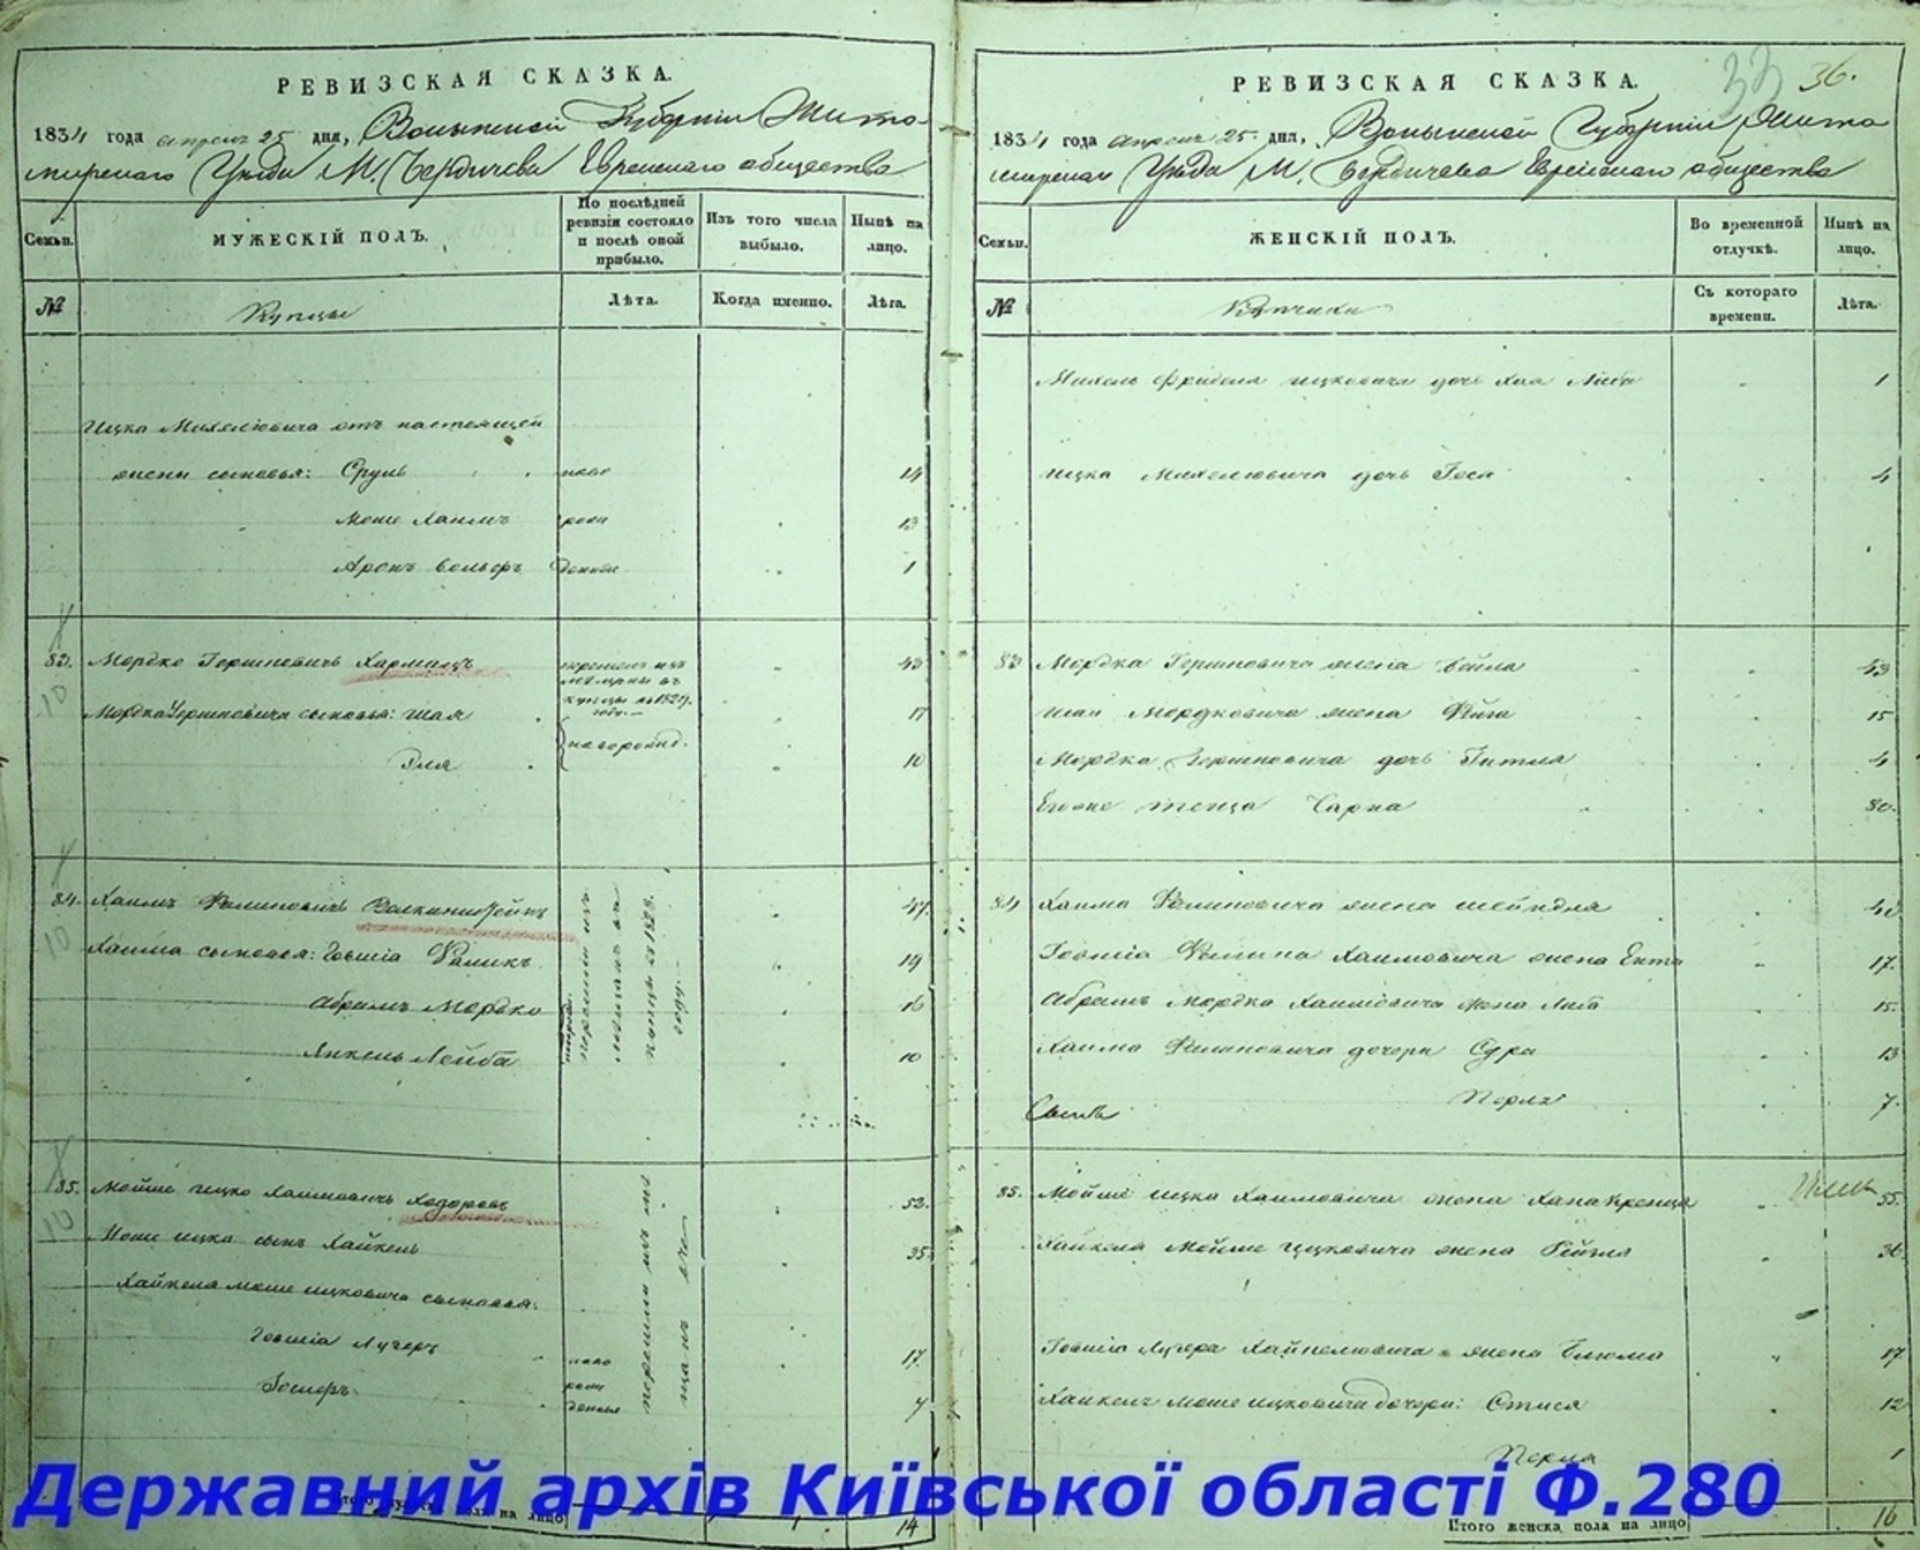 РЕВИЗСКАЯ СКАЗКА.
1834 года апреля 25 дня, Волынской Губернiи Жито-
мирскаго Уезда М. Бердичева Еврейскаго общества
Семьи.
МУЖЕСКIЙ ПОЛЪ.
По послѣдней
ревизiи состояло
и послѣ оной
прибыло.
Изъ того числа
выбыло.
Нынѣ на
лицо.
№
Купцы
Лѣта.
Когда именно.
Лѣта.
Ицка Михелiовича отъ настоящей
жены сыновья: Сруль ново 14
Моше Хаимъ рож 13
Аронъ Вольфъ денной 1
83. Мордко Гершковичъ 43
купцы въ 1829.
году.
Мордка Гершковича сыновья: Шая 17
новорожд.
Эля 10
84. Хаимъ Фаликовичъ 47.
Хаима сыновья: Iовшiа Фаликъ 19
Абрамъ Мордко 16
Янкель Лейба 10
купцы въ 1828.
году.
85. Мойше Ицко Хаимовичъ Ходоровъ 52.
Моше Ицка сынъ Хайкель 35.
Хайкеля Моше Ицковича сыновья:
Iовшiа Лузеръ ново 17
рож
денные
Итого мужска пола на лицо 14
РЕВИЗСКАЯ СКАЗКА.
33 36.
1834 года апреля 25 дня, Волынской Губернiи Жито
мирскаго Уезда М. Бердичева Еврейскаго общества
Семьи.
ЖЕНСКIЙ ПОЛЪ.
Во временной
отлучкѣ.
Нынѣ на
лицо.
№
Купчихи
Съ котораго
времени.
Лѣта.
Михель Фриделя Ицковича дочь Хая Либа 1
Ицка Михелiовича дочь Геса 4
83 Мордка Гершковича жена Бейла 43
Шаи Мордковича жена Фейга 15
Мордка Гершковича дочь Гитля 4
Егоже теща Сарна 80.
84 Хаима Фаликовича жена Шейндля 40
Iовшiа Фалика Хаимовича жена Ента 17.
Абрамъ Мордка Хаимовича жена Либа 15.
Хаима Фаликовича дочери Сура 13
Перля 7.
85. Мойше Ицка Хаимовича жена Хана Кренця 55.
Хайкеля Мойше Ицковича жена Рейзля 36
Iовшiа Лузера Хайкелiовича жена Блюма 17
Хайкель Моше Ицковича дочери: Стися 12
Перля 1
Итого женска пола на лицо 16
Державний архів Київської області Ф.280